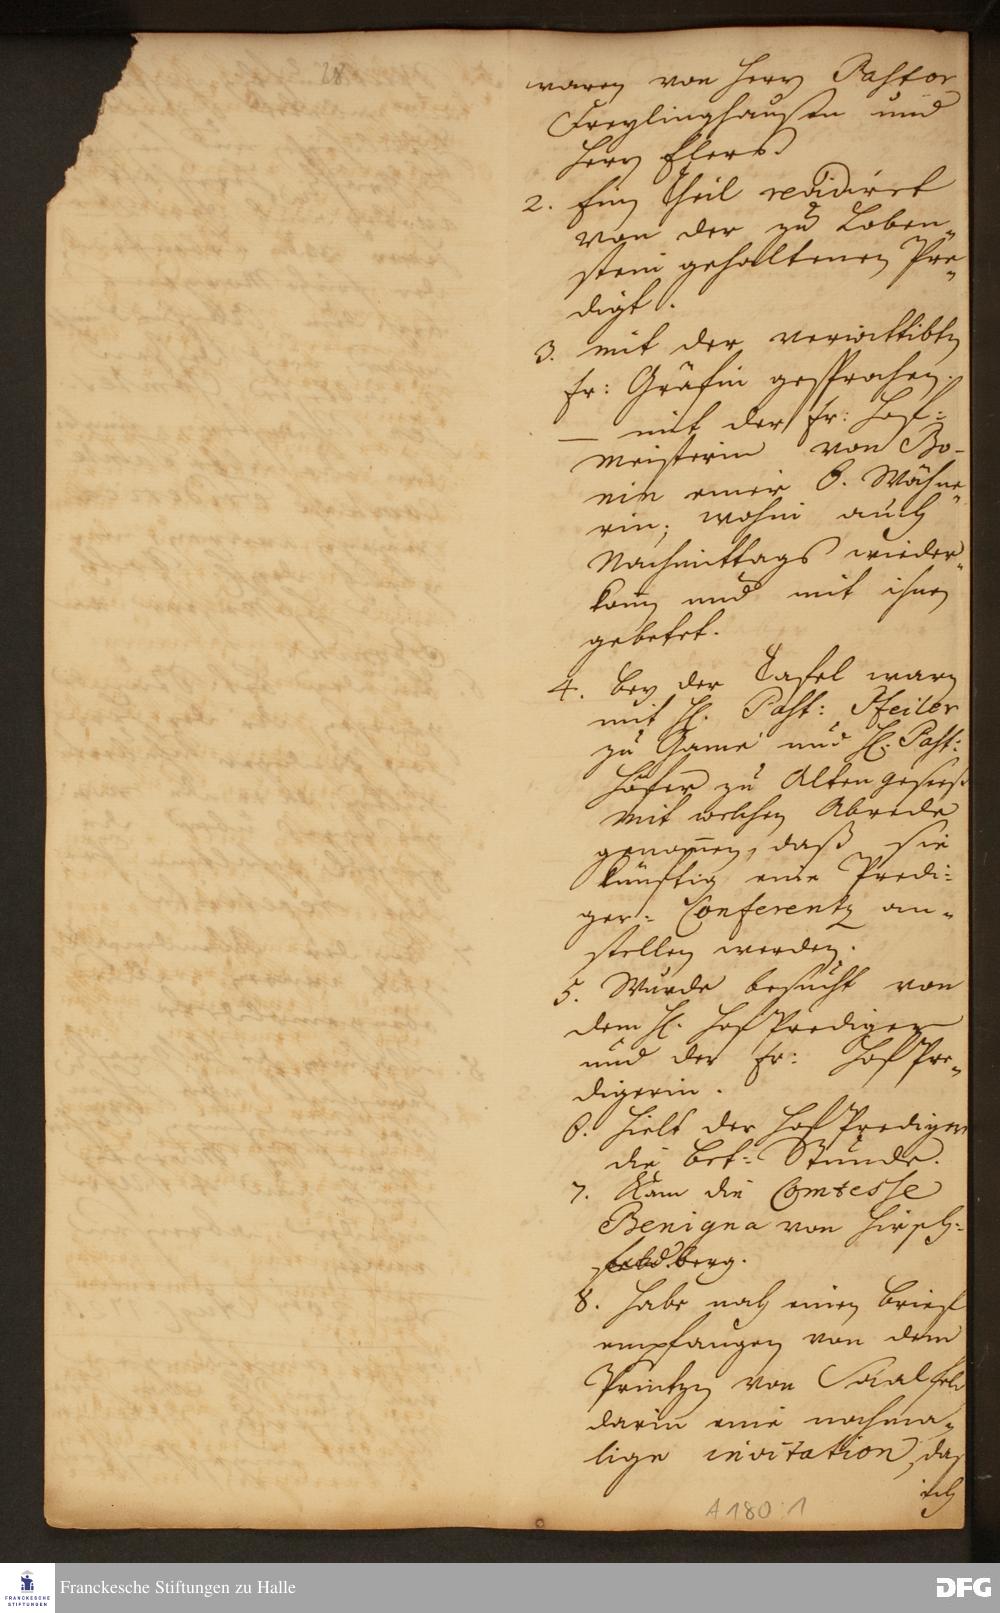 28
waren von Herrn Pastor
Freylinghausen und
Herrn Elers.
2. Einen Theil revidiret
von der zu Loben-
stein gehaltenen Pre-
digt.
3. mit der verwittibten
Fr: Gräfin gesprochen.
— mit der Fr: Hof-
meisterin von Bo-
nin einer 6. Wöchne-
rin; wohin auch
Nachmittags wieder-
kam und mit ihnen
gebetet.
4. bey der Tafel waren
mit H. Past: Pfeiler
zu Game und H. Past:
Höfer zu Altengesees
mit welchen Abrede
genom̅en, daß sie
künftig eine Predi-
ger- Conferentz an-
stellen werden.
5. Wurde besucht von
dem H. Hof Prediger
und der Fr: Hof Pre-
digerin.
6. hielt der Hof Prediger
die Bet- Stunde.
7. Kam die Comtesse
Benigna von Hirsch-
feld.berg.
8. habe noch einen Brief
empfangen von dem
Printzen von Saalfeld
darin eine nochma-
lige invitation, das
ich
A 180 : 1
FRANCKESCHE STIFTUNGEN
Franckesche Stiftungen zu Halle
DFG